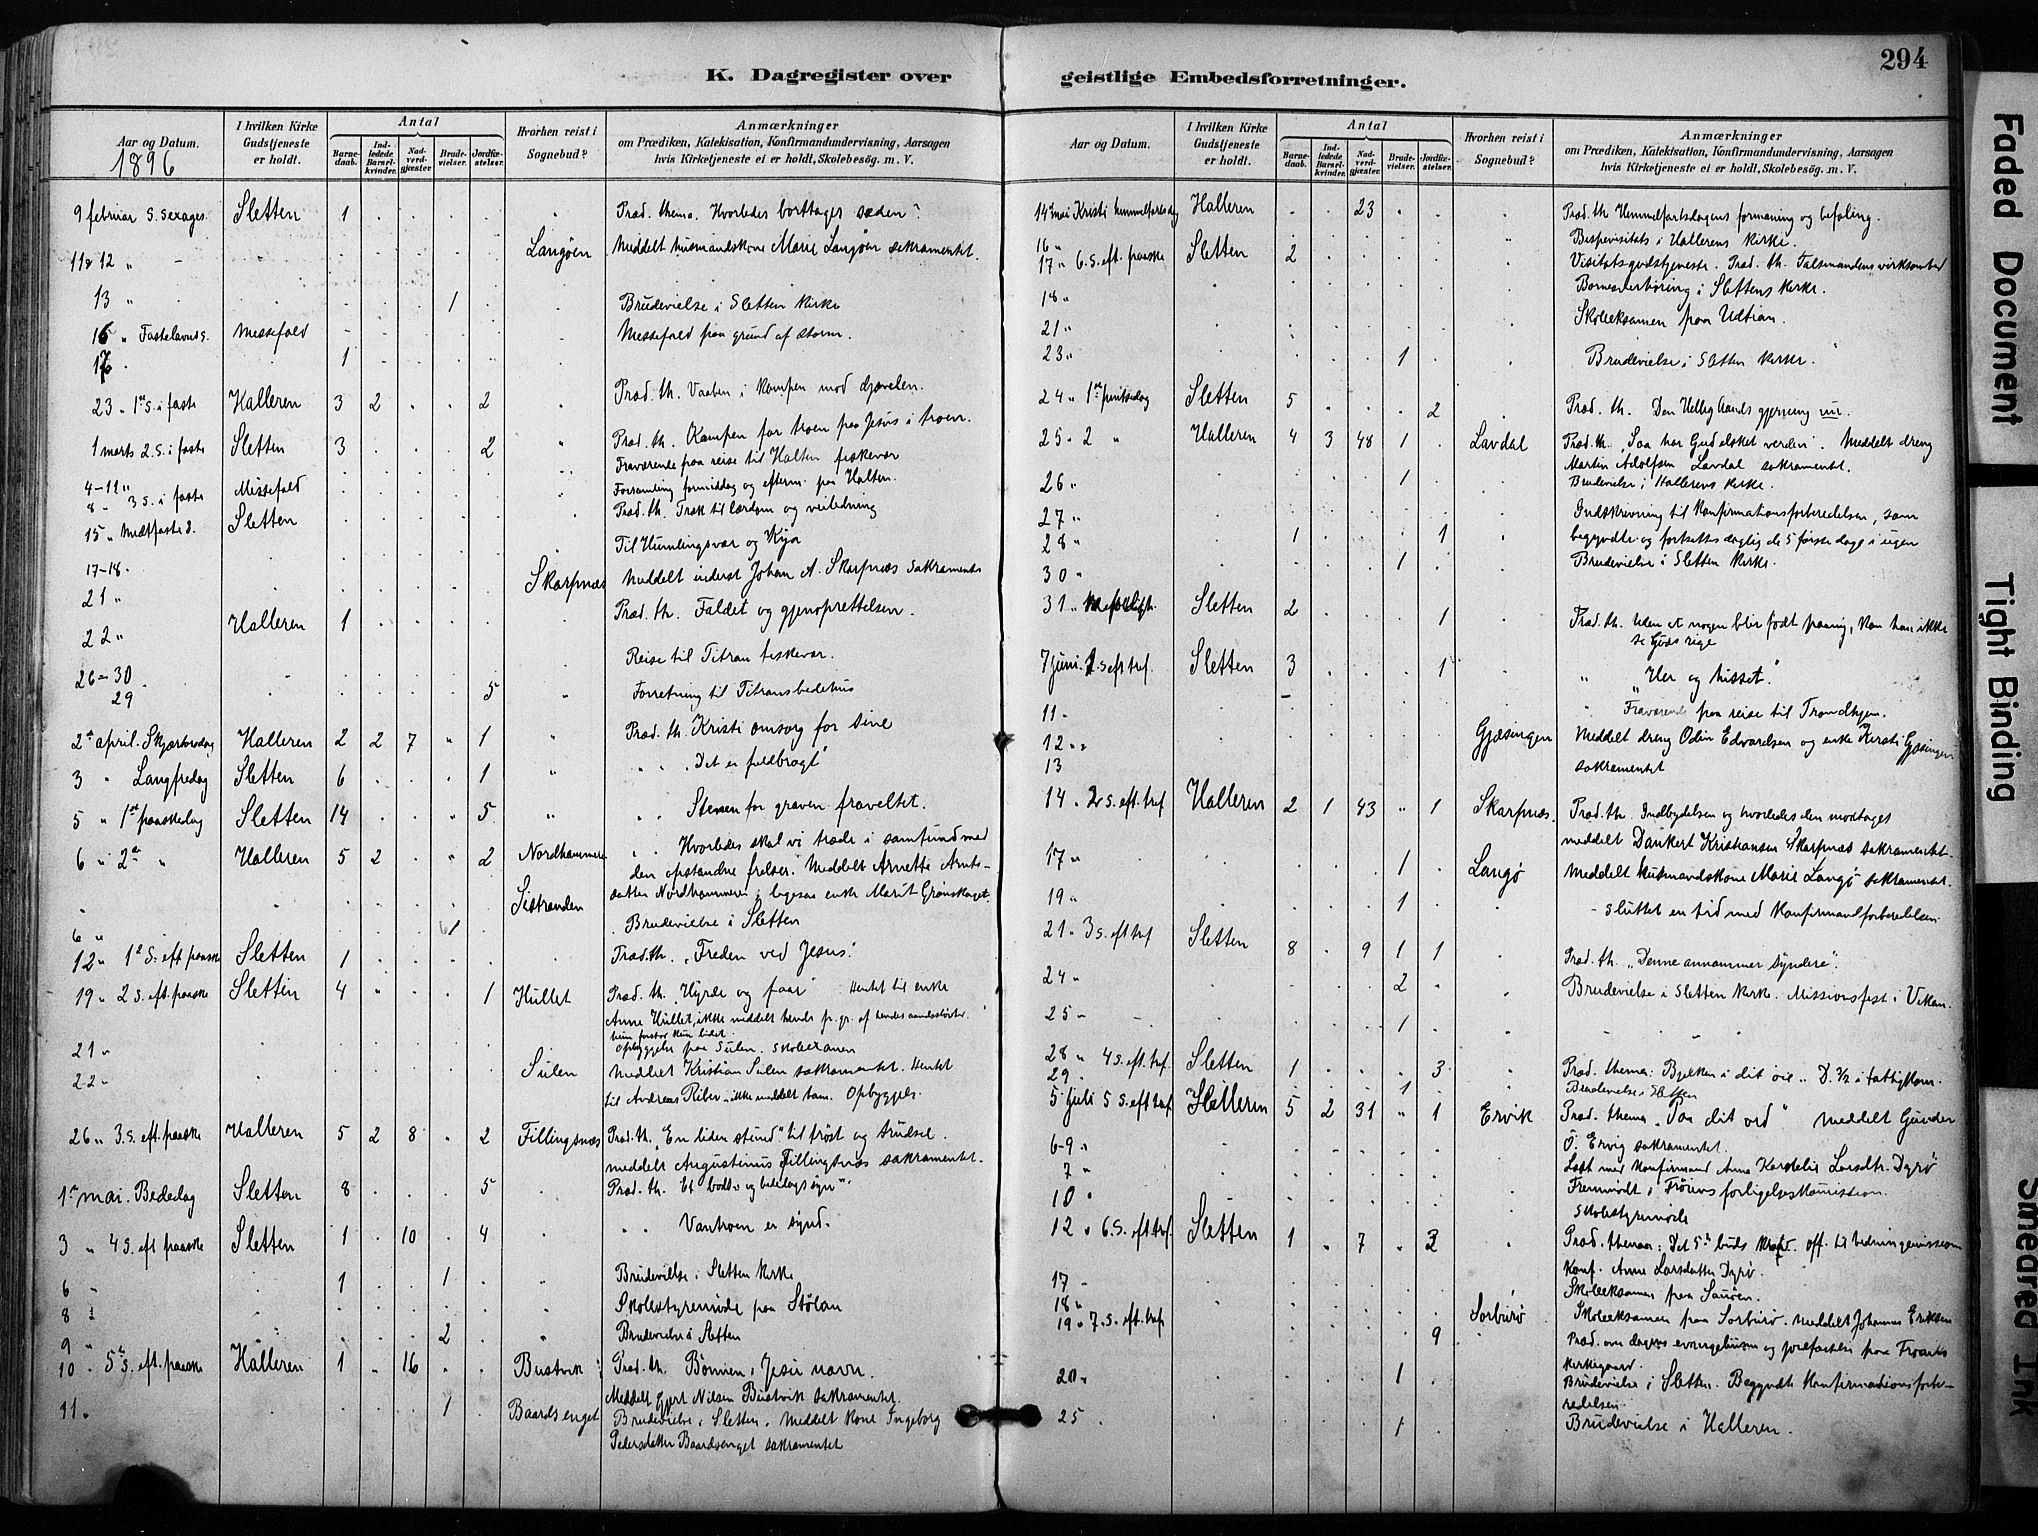 294
K. Dagregister over geistlige Embedsforretninger.
Aar og Datum.
1896
I hvilken Kirke Gudstjeneste er holdt.
Antal
Barne-daab.
Ind-ledede Barsel-kvinder.
Nad-verd-gjæster.
Brude-vielser.
Jordfæ-stelser.
Hvorhen reist i Sognebud?
Anmærkninger
om Prædiken, Katekisation, Konfirmandundervisning, Aarsagen
hvis Kirketjeneste ei er holdt, Skolebesøg. m. V.
9 februar S. Sexages. Sletten 1 Præd. thema. Hvorledes borttages sæden?
11 & 12 " Langöen Meddelt husmandskone Marie Langöen sakramentet.
13 " 1 Brudevielse i Sletten kirke
16 " Fastelavns S. Messefald Messefald paa grund af storm.
17 1
23 " 1ste S. i faste Halleren 3 2 2 Præd. th. Vaaben i kampen mod djævelen.
1 marts 2. S. i faste Sletten 3 2 Præd. th. Kampen for troen paa Jesus i troen.
4-11 " Fraværende paa reise til Halten fiskevær
8 - 3 S. i faste Messefald Forsamling formiddag og efterm. paa Halten.
15 " Midtfaste S. Sletten Præd. th. Træk til lærdom og veiledning
17-18 Til Humlingsvær og Kya
21 " Skarpnæs Meddelt inderst Johan A. Skarpnæs sakramentet
22 " Halleren 1 Præd. th. Faldet og gjenoprettelsen.
26-30 Reise til Titran fiskevær.
29 5 Forretning til Titrans bedehus
2den april. Skjærtorsdag Halleren 2 2 7 " 1 Præd. th. Kristi omsorg for sine
3 " Langfredag Sletten 6 1 " Det er fuldbragt"
5 " 1ste paaskedag Sletten 14 5 " Stenen for graven fraveltet.
6 " 2den " Halleren 5 2 " 2 Nordhammeren " Hvorledes skal vi træde i samfund med
den opstandne frelser. Meddelt Arnette Arnts-
Sistranden datter Nordhammeren; ligesaa enke Marit Grönskaget.
6 " 1 Brudevielse i Sletten
12 " 1ste S. eft. paaske Sletten 1 Præd. th. "Freden ved Jesus."
19 " 2 S. eft. paaske Sletten 4 1 Hullet Præd. th. "Hyrde og faar" Hentet til enke
Anne Hullet, ikke meddelt hende p. gr. af hendes aandssløvhet.
hun forstor kun lidet.
21 " Opbyggelse paa Sulen. Skoleexamen
22 " Sulen Meddelt Kristian Sulen sakramentet. Hentet
til Andreas Riber - ikke meddelt ham. Opbyggels.
26 " 3 S. eft. paaske Halleren 5 2 8 " 2 Fillingsnæs Præd. th. "En liden stund" til tröst og trudsel.
meddelt Augustinus Fillingsnæs sakramentet.
1ste mai. Bededag Sletten 8 5 Præd. th. Et bods- og bededagssyn".
3 " 4 S. eft. paaske Sletten 1 10 4 " Vantroen er synd.
6 " 1 1 Brudevielse i Sletten kirke
8 " Skolestyremöde paa Stölan
9 " 2 Brudevielse i Sletten
10 " 5te S. eft. paaske Halleren 1 " 16 Bustvik Præd. th. Bönnen i Jesu navn.
Meddelt Gjert Nilsen Bustvik sakramentet.
11 " 1 Baardsenget Brudevielse i Sletten. Meddelt kone Ingeborg
Pedersdatter Baardsenget sakramentet
Aar og Datum.
I hvilken Kirke Gudstjeneste er holdt.
Antal
Barne-daab.
Ind-ledede Barsel-kvinder.
Nad-verd-gjæster.
Brude-vielser.
Jordfæ-stelser.
Hvorhen reist i Sognebud?
Anmærkninger
om Prædiken, Katekisation, Konfirmandundervisning, Aarsagen
hvis Kirketjeneste ei er holdt, Skolebesøg. m. V.
14de mai Kristi himmelfartsdag Halleren 23 Præd. th Himmelfartsdagens formaning og befaling.
16 " Bispevisitats i Hallerens kirke.
17 " 6. S. eft. paaske Sletten 2 Visitatsgudstjeneste. Præd. th. Talsmandens virksomhed
18 " Börneoverhöring i Slettens kirke.
21 " Skoleeksamen paa Udtian.
23 " 1 Brudevielse i Sletten kirke.
24 " 1ste pintsedag Sletten 5 2 Præd. th. Den Hellig Aands gjerning
25 " 2 " Halleren 4 3 48 1 Lavdal Præd. th. "Saa har Gud elsket verden". Meddelt dreng
Martin Adolfsen Lavdal sakramentet.
26 " 1 Brudevielse i Hallerens kirke.
27 " Indskrivning til konfirmationsforberedelsen, som
28 " 1 1 begyndte og fortsettes daglig de 5 förste dage i ugen
30 " 1 Brudevielse i Sletten kirke.
31 " Sletten 2 1 Præd. th. Uden at nogen blir født paany, kan han ikke
se Guds rige
7 juni. 1 S. eft. tref. Sletten 3 1 " Her og hisset."
11 " Fraværende paa reise til Trondhjem.
12 " Gjæsingen Meddelt dreng Odin Edvardsen og enke Kersti Gjæsingen
13 sakramentet
14 " 2 S. eft. tref Halleren 2 1 43 " 1 Skarpnæs. Præd. th. Indbydelsen og hvorledes den modtages
meddelt Dankert Kristiansen Skarpnæs sakramentet.
17 " 1 Langö Meddelt husmandskone Marie Langö sakramentet.
19 " 1 - sluttet en tid med konfirmandforberedelsen
21 " 3 S. eft tref Sletten 8 9 1 1 Præd. th. "Denne annammer syndere".
24 " 2 Brudevielse i Sletten kirke. Missionsfest i Vikan.
25 - 1
28 " 4 S. eft. tref. Sletten 1 3 Præd. thema: Bjelken i dit öie.
29 " 1 Brudevielse i Sletten
5 Juli 5 S. eft. tref. Halleren 5 2 31 " 1 Ervik Præd. thema "Paa dit ord" Meddelt Gunder
6-9 " O. Ervig sakramentet.
7 " Læst med konfirmand Anna Kornelie Larsdtr. Dyrö
10 " Fremmödt i Fröiens forligelseskommission.
Skolestyremöde
12 " 6 S. eft. tref. Sletten 1 " 7 " 3 Præd. thema: Det 5te buds off. til indremission
Konf. Anne Larsdatter Dyrö.
17 " Skoleeksamen paa Sauöen.
18 " Sorburö Skoleeksamen paa Sorburö. Meddelt Johannes Eriksen
19 " 7. S. eft. tref 9 Præd. over dagens evangelium og jordfæstelse paa Froans
kirkegaard.
20 " 1 Brudevielse i Sletten. Begyndte konfirmationsforbe-
redelsen.
25 1 Brudevielse i Halleren.
Faded Document
Tight Binding
Smeared Ink